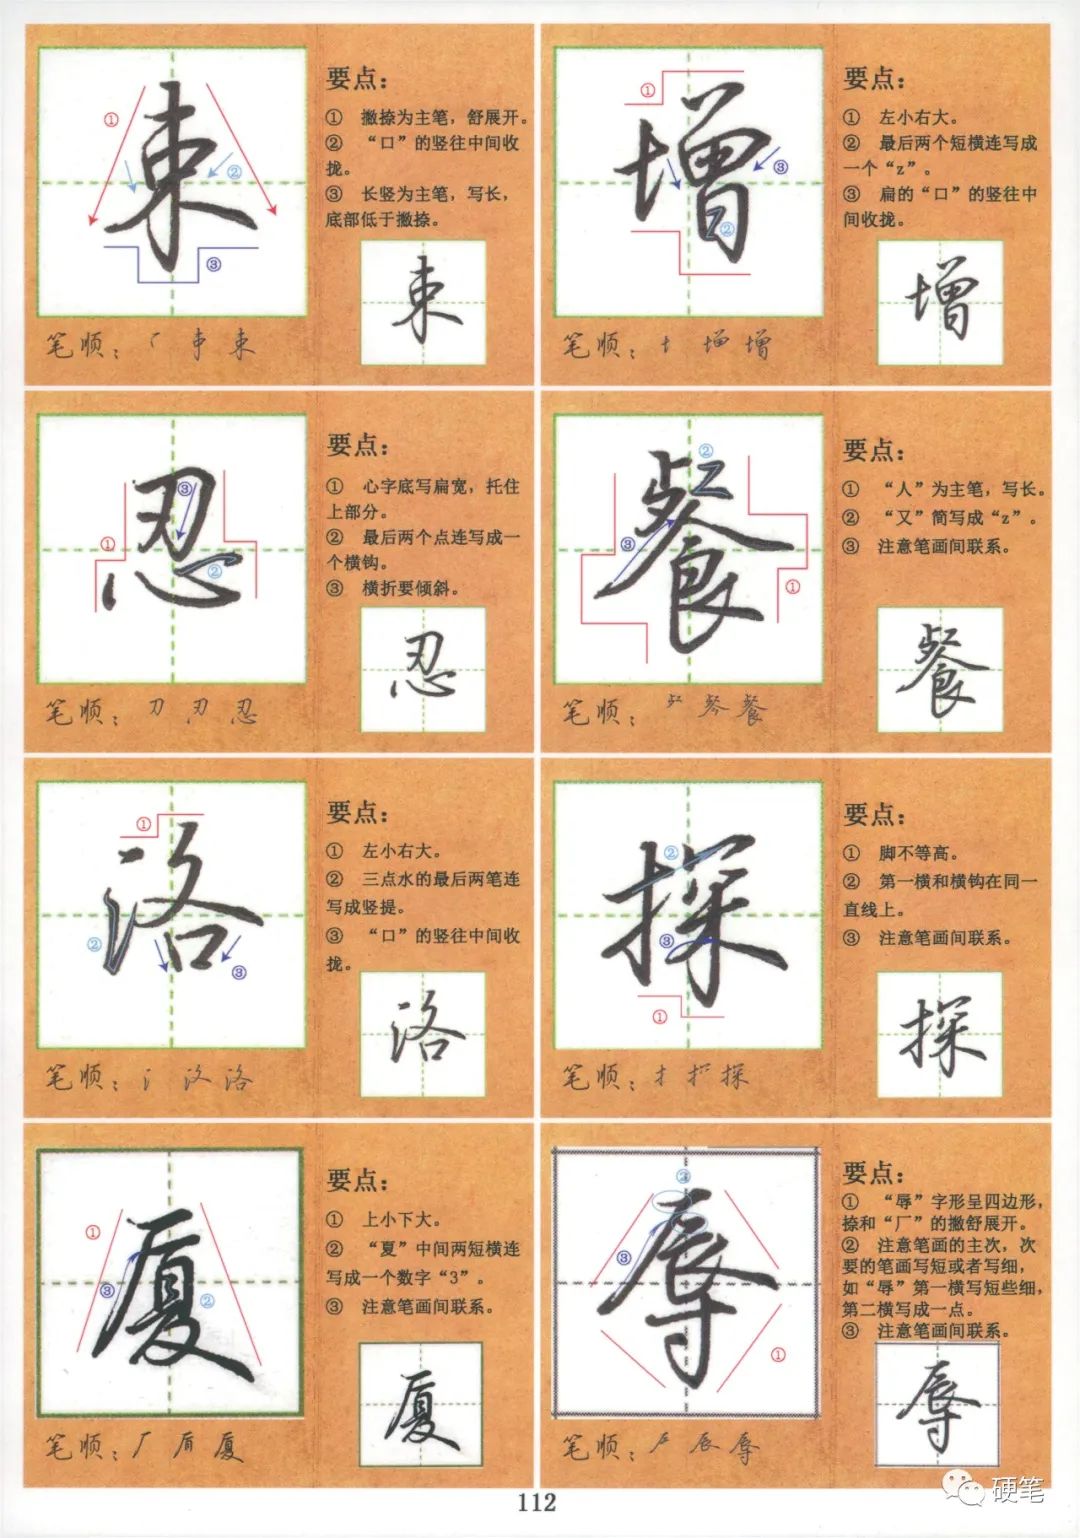 束
要点：
① 撇捺为主笔，舒展开。
② “口”的竖往中间收
拢。
③ 长竖为主笔，写长，
底部低于撇捺。
① ② ③
束
笔顺： 束
增
要点：
① 左小右大。
② 最后两个短横连写成
一个“z”。
③ 扁的“口”的竖往中
间收拢。
① ② ③
增
笔顺： 增
忍
要点：
① 心字底写扁宽，托住
上部分。
② 最后两个点连写成一
个横钩。
③ 横折要倾斜。
① ② ③
忍
笔顺：刀 刃 忍
餐
要点：
① “人”为主笔，写长。
② “又”简写成“z”。
③ 注意笔画间联系。
① ② ③
餐
笔顺： 餐
洛
要点：
① 左小右大。
② 三点水的最后两笔连
写成竖提。
③ “口”的竖往中间收
拢。
① ② ③
洛
笔顺：氵 洛
探
要点：
① 脚不等高。
② 第一横和横钩在同一
直线上。
③ 注意笔画间联系。
① ② ③
探
笔顺：扌 探
厦
要点：
① 上小下大。
② “夏”中间两短横连
写成一个数字“3”。
③ 注意笔画间联系。
① ② ③
厦
笔顺：厂 厦
辱
要点：
① “辱”字形呈四边形，
捺和“厂”的撇舒展开。
② 注意笔画的主次，次
要的笔画写短或者写细，
如“辱”第一横写短些细，
第二横写成一点。
③ 注意笔画间联系。
① ② ③
辱
笔顺： 辰 辱
112
硬笔